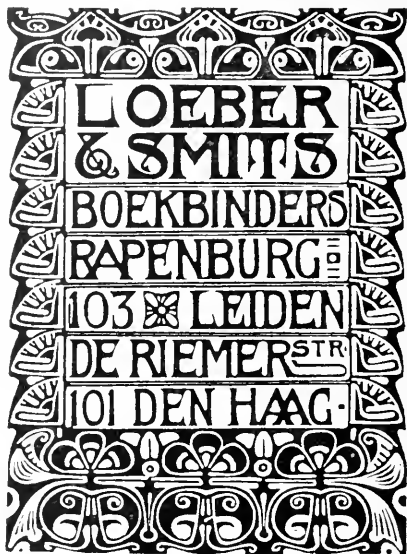 LOEBER
& SMITS
BOEKBINDERS
RAPENBURG
103 LEIDEN
DE RIEMERSTR.
101 DEN HAAG.